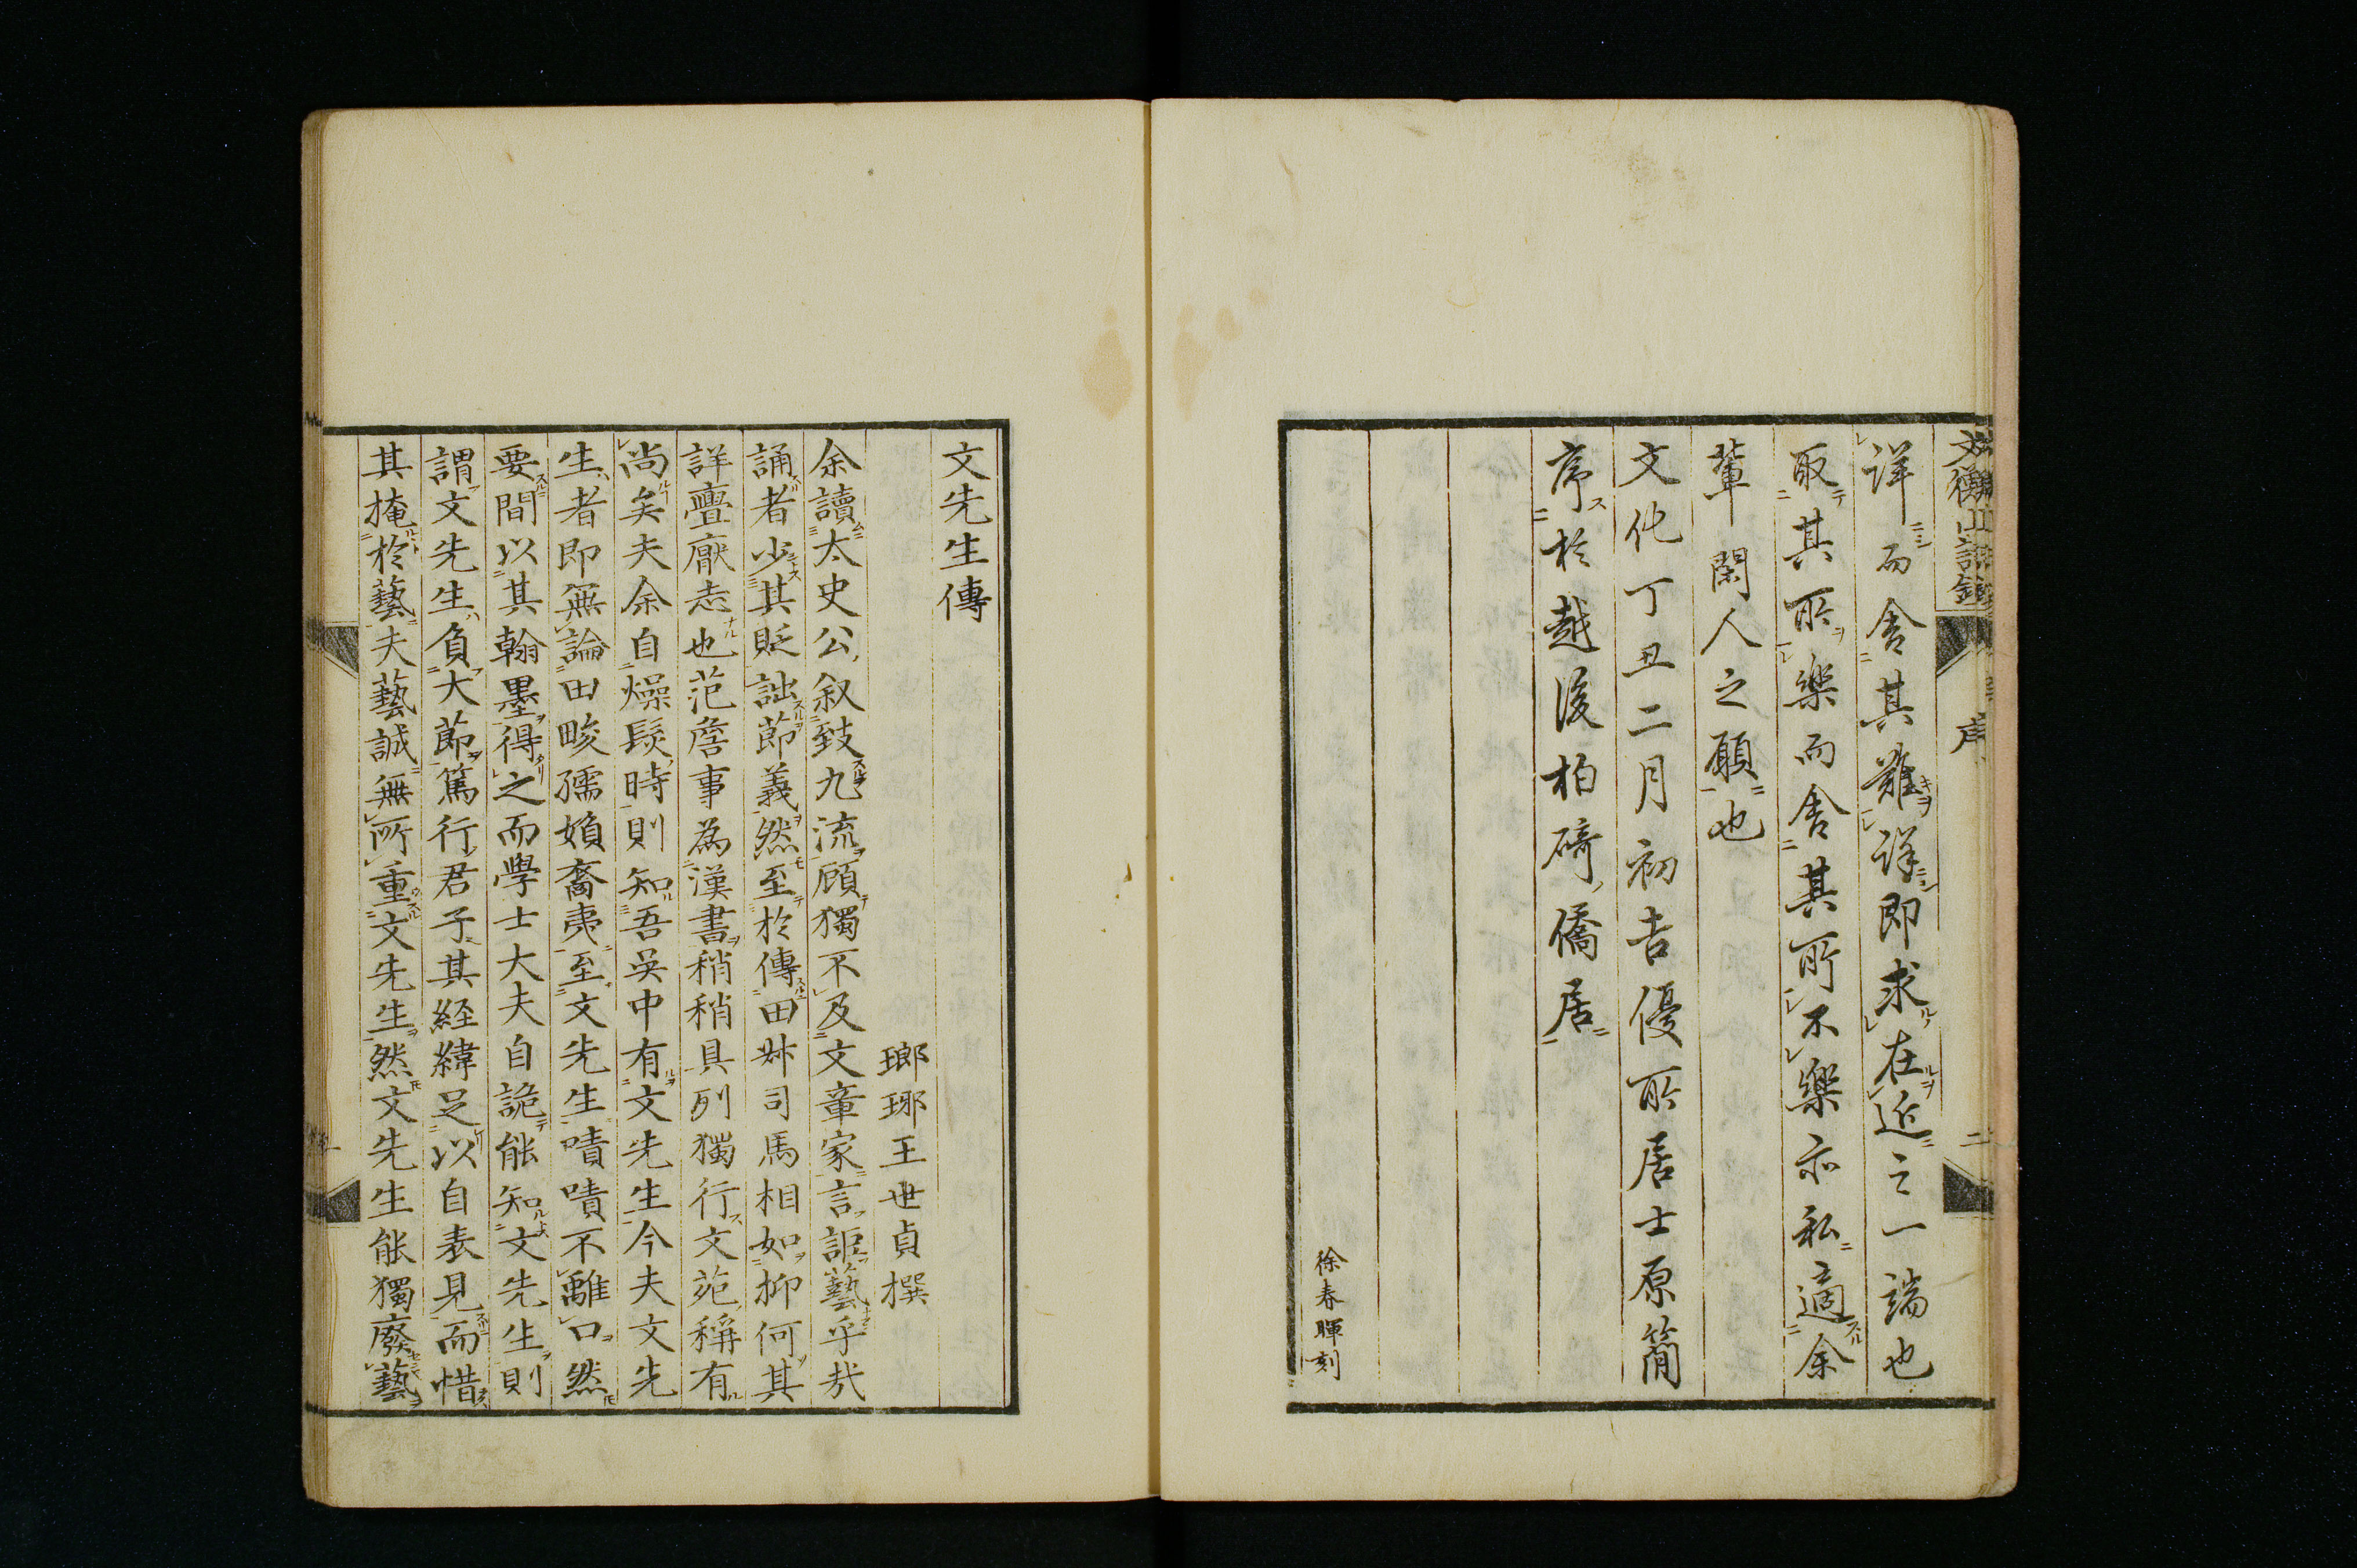 文衡山詩鈔 序 二
詳而舎其難詳即求在近之一端也
取其所樂而舎其所不樂亦私適余
輩閑人之願也
文化丁丑二月初吉優所居士原簡
序於越後柏碕僑居
徐春暉刻
文先生傳
瑯琊王世貞撰
余讀太史公叙致九流顧獨不及文章家言詎藝乎㢤
誦者少其貶詘節義然至於傳田竗司馬相如抑何其
詳亹厭志也范詹事為漢書稍稍具列獨行文苑稱有
尚矣夫余自燥髮時則知吾吳中有文先生今夫文先
生者即無論田畯孺嬪裔夷至文先生嘖嘖不離口然
要間以其翰墨得之而學士大夫自詭能知文先生則
謂文先生負大節篤行君子其経緯足以自表見而惜
其掩於藝夫藝誠無所重文先生然文先生能獨廢藝